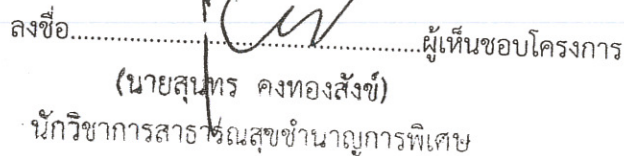 ลงชื่อ............................................ผู้เห็นชอบโครงการ
(นายสุนทร คงทองสังข์)
นักวิชาการสาธารณสุขชำนาญการพิเศษ